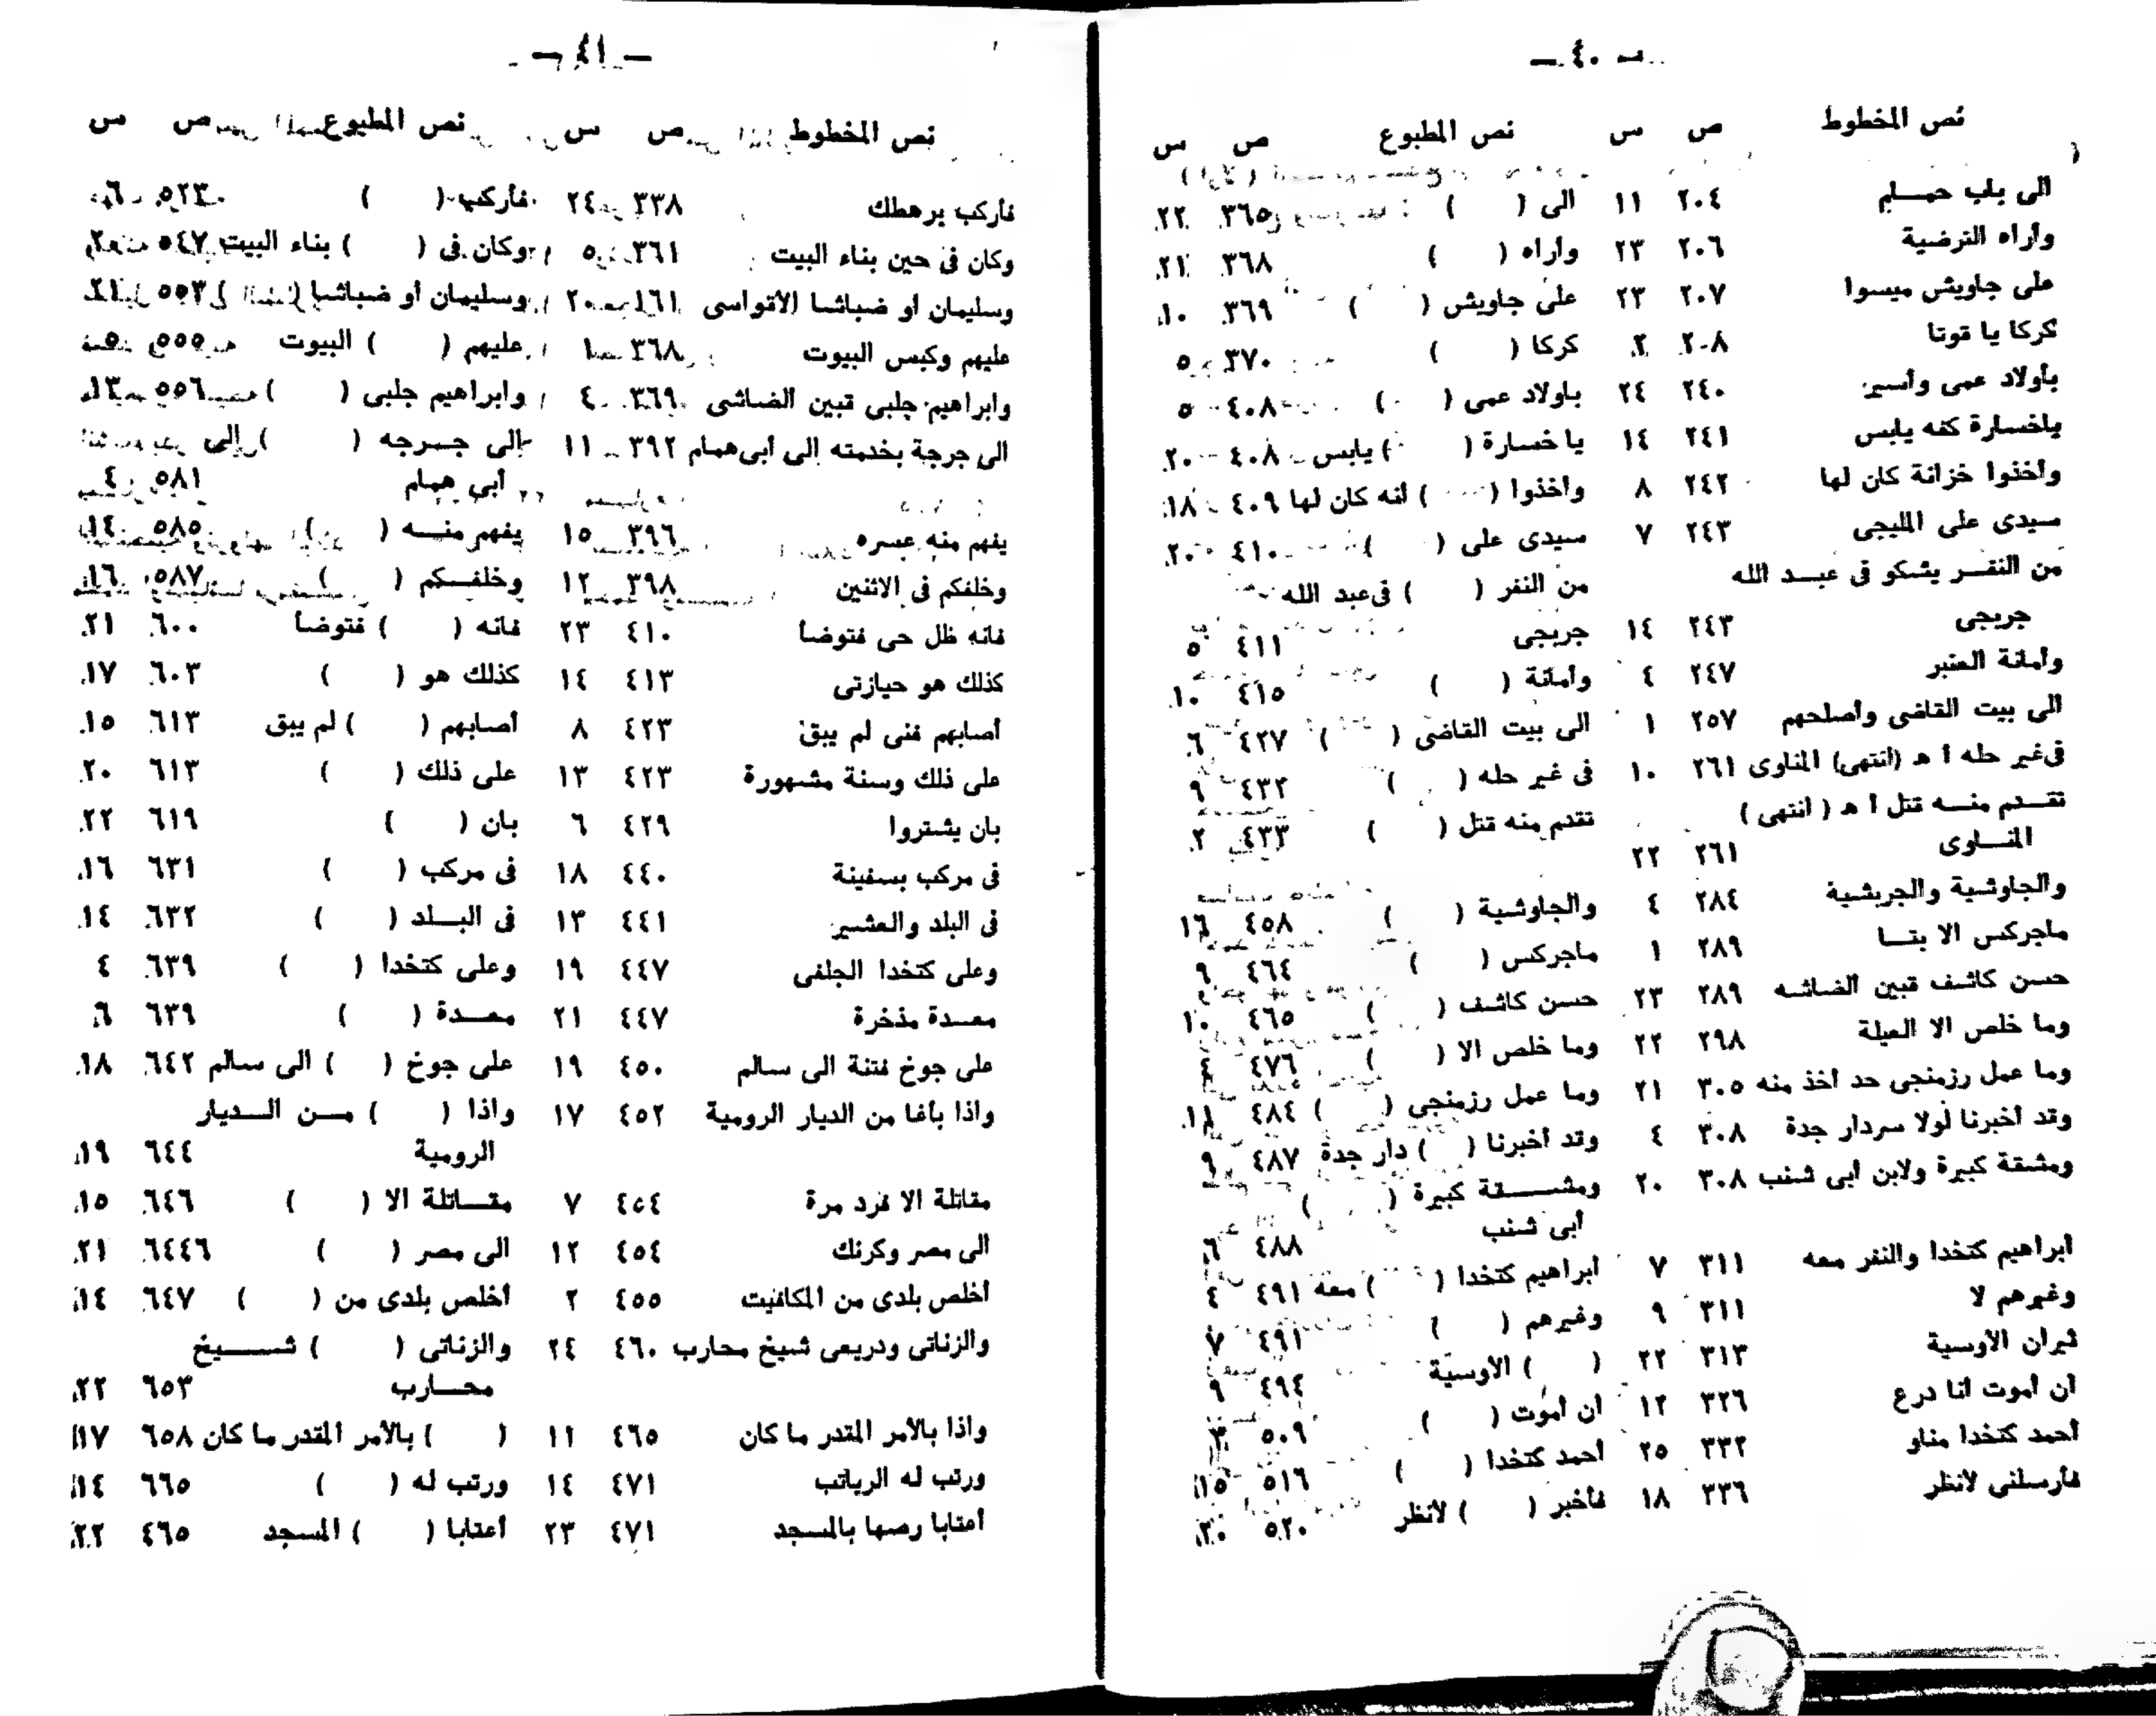 — ٤٠ —
نص المخطوط ص س نص المطبوع ص س
الى باب حمــام ٢٠٤ ١١ الى ( ) ٣٦٥ ٢٢
وأراه الترضية ٢٠٦ ٢٣ وأراه ( ) ٣٦٨ ٢١
على جاويش ميسوا ٢٠٧ ٢٣ على جاويش ( ) ٣٦٩ ١٠
كركا يا قوتا ٢٠٨ ٢ كركا ( ) ٣٧٠ ٥
بأولاد عمى وأسير ٢٤٠ ٢٤ بأولاد عمى ( ) ٤٠٨ ٥
ياخسارة كنه يابس ٢٤١ ١٤ يا خسارة ( ) يابس ٤٠٨ ٢٠
وأخذوا خزانة كان لها ٢٤٢ ٨ وأخذوا ( ) أنه كان لها ٤٠٩ ١٨
سيدى على المليجى ٢٤٣ ٧ سيدى على ( ) ٤١٠ ٢٠
من النفــر يشكو فى عبــد الله من النفر ( ) فى عبد الله
جربجى ٢٤٣ ١٤ جربجى ٤١١ ٥
وأمانة العنبر ٢٤٧ ٤ وأمانة ( ) ٤١٥ ١٠
الى بيت القاضى وأصلحهم ٢٥٧ ١ الى بيت القاضى ( ) ٤٢٧ ٦
فى غير حله أ هـ (انتهى) المناوى ٢٦١ ١٠ فى غير حله ( ) ٤٣٢ ٩
تقــدم منــه قتل أ هـ ( انتهى ) تقدم منه قتل ( ) ٤٣٣ ٢
المنــاوى ٢٦١ ٢٢
والجاوشية والجربشية ٢٨٤ ٤ والجاوشية ( ) ٤٥٨ ١٦
ماجركس الا بتــا ٢٨٩ ١ ماجركس ( ) ٤٦٤ ٩
حسن كاشف قبين الضاشه ٢٨٩ ٢٣ حسن كاشف ( ) ٤٦٥ ١٠
وما خلص الا العيلة ٢٩٨ ٢٢ وما خلص الا ( ) ٤٧٦
وما عمل رزمنجى حد أخذ منه ٣٠٥ ٢١ وما عمل رزمنجى ( ) ٤٨٤ ١١
وقد أخبرنا لولا سردار جدة ٣٠٨ ٤ وقد أخبرنا ( ) دار جدة ٤٨٧ ٩
ومشقة كبيرة ولابن أبى شنب ٣٠٨ ٢٠ ومشـــقة كبيرة ( )
أبى شنب ٤٨٨ ٦
ابراهيم كتخدا والنفر معه ٣١١ ٧ ابراهيم كتخدا ( ) معه ٤٩١ ٤
وغيرهم لا ٣١١ ٩ وغيرهم ( ) ٤٩١ ٧
ثيران الأوسية ٣١٣ ٢٢ ( ) الأوسية ٤٩٤ ٩
أن أموت أنا درع ٣٢٦ ١٢ أن أموت ( ) ٥٠٩ ٣
أحمد كتخدا مناو ٣٣٢ ٢٥ أحمد كتخدا ( ) ٥١٦ ١٥
فأرسلنى لأنظر ٣٣٦ ١٨ فأخبر ( ) لأنظر ٥٢٠ ٢٠
— ٤١ —
نص المخطوط ص س نص المطبوع ص س
فأركب برهطك ٣٣٨ ٢٤ فأركب ( ) ٥٢٣ ٦
وكان فى حين بناء البيت ٣٦١ ٥ وكان فى ( ) بناء البيت ٥٤٧ ٢
وسليمان أو ضباشا الأتواسى وسليمان أو ضباشا (
عليهم وكبس البيوت ٣٦٨ ١ عليهم ( ) البيوت ٥٥٥ ٥
وابراهيم جلبى قبين الضاشى ٣٦٩ ٤ وابراهيم جلبى ( ) ٥٥٦ ١٣
الى جرجة بخدمته إلى أبى همام ٣٩٢ ١١ الى جــرجه ( ) إلى
أبى همام ٥٨١ ٤
يفهم منه عسره ٣٩٦ ١٥ يفهم منــه ( ) ٥٨٥ ١٤
وخلفكم فى الاثنين ٣٩٨ ١٢ وخلفــكم ( ) ٥٨٧ ١٦
فانه ظل حى فتوضأ ٤١٠ ٢٣ فانه ( ) فتوضأ ٦٠٠ ٢١
كذلك هو حيازتى ٤١٣ ١٤ كذلك هو ( ) ٦٠٣ ١٧
أصابهم فنى لم يبق ٤٢٣ ٨ أصابهم ( ) لم يبق ٦١٣ ١٥
على ذلك وسنة مشهورة ٤٢٣ ١٣ على ذلك ( ) ٦١٣ ٢٠
بان يشتروا ٤٢٩ ٦ بان ( ) ٦١٩ ٢٢
فى مركب بسفينة ٤٤٠ ١٨ فى مركب ( ) ٦٣١ ١٦
فى البلد والعشير ٤٤١ ١٣ فى البــلد ( ) ٦٣٢ ١٤
وعلى كتخدا الجلفى ٤٤٧ ١٩ وعلى كتخدا ( ) ٦٣٩ ٤
معــدة مذخرة ٤٤٧ ٢١ معــدة ( ) ٦٣٩ ٦
على جوخ فتنة الى سالم ٤٥٠ ١٩ على جوخ ( ) الى سالم ٦٤٢ ١٨
واذا بأغا من الديار الرومية ٤٥٢ ١٧ واذا ( ) مــن الــديار
الرومية ٦٤٤ ١٩
مقاتلة الا فرد مرة ٤٥٤ ٧ مقــاتلة الا ( ) ٦٤٦ ١٥
الى مصر وكرنك ٤٥٤ ١٢ الى مصر ( ) ٦٤٤٦ ٢١
أخلص بلدى من المكافيت ٤٥٥ ٢ أخلص بلدى من ( ) ٦٤٧ ١٤
والزناتى ودريعى شيخ محارب ٤٦٠ ٢٤ والزناتى ( ) شـــيخ
محــارب ٦٥٣ ٢٢
واذا بالأمر المقدر ما كان ٤٦٥ ١١ ( ) بالأمر المقدر ما كان ٦٥٨ ١٧
ورتب له الرياتب ٤٧١ ١٤ ورتب له ( ) ٦٦٥ ١٤
أعتابا رصها بالمسجد ٤٧١ ٢٣ أعتابا ( ) المسجد ٤٦٥ ٢٢